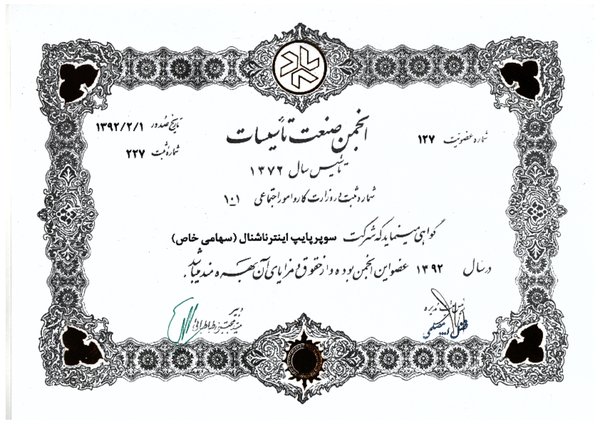 انجمن صنعت تأسیسات
شماره عضویت ۱۲۷
تاریخ صدور ۱۳۹۲/۲/۱
شماره ثبت ۲۲۷
تأسیس سال ۱۳۷۲
شماره ثبت در وزارت کار و امور اجتماعی ۱-۱۰
گواهی مینماید که شرکت سوپرپایپ اینترناشنال (سهامی خاص)
در سال ۱۳۹۲ عضو این انجمن بوده و از حقوق و مزایای آن بهره مند میباشد.
دبیر